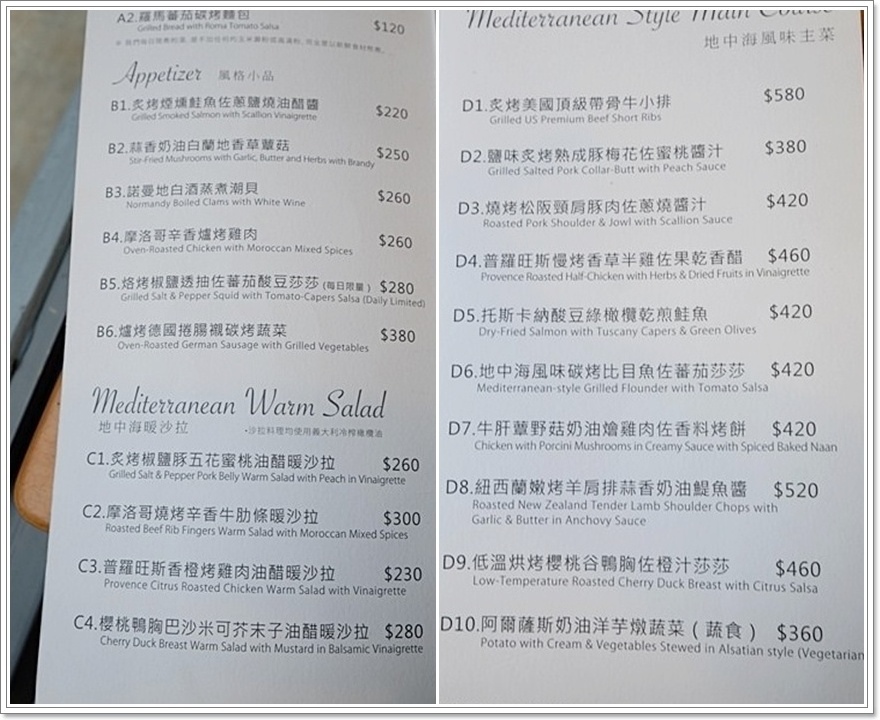 A2.羅馬蕃茄碳烤麵包 $120
Grilled Bread with Roma Tomato Salsa
Appetizer 風格小品
B1.炙烤煙燻鮭魚佐蔥鹽燒油醋醬 $220
Grilled Smoked Salmon with Scallion Vinaigrette
B2.蒜香奶油白蘭地香草蕈菇 $250
Stir-Fried Mushrooms with Garlic, Butter and Herbs with Brandy
B3.諾曼地白酒蒸煮潮貝 $260
Normandy Boiled Clams with White Wine
B4.摩洛哥辛香爐烤雞肉 $260
Oven-Roasted Chicken with Moroccan Mixed Spices
B5.烙烤椒鹽透抽佐蕃茄酸豆莎莎(每日限量) $280
Grilled Salt & Pepper Squid with Tomato-Capers Salsa (Daily Limited)
B6.爐烤德國捲腸襯碳烤蔬菜 $380
Oven-Roasted German Sausage with Grilled Vegetables
Mediterranean Warm Salad
地中海暖沙拉 •沙拉料理均使用義大利冷榨橄欖油
C1.炙烤椒鹽豚五花蜜桃油醋暖沙拉 $260
Grilled Salt & Pepper Pork Belly Warm Salad with Peach in Vinaigrette
C2.摩洛哥燒烤辛香牛肋條暖沙拉 $300
Roasted Beef Rib Fingers Warm Salad with Moroccan Mixed Spices
C3.普羅旺斯香橙烤雞肉油醋暖沙拉 $230
Provence Citrus Roasted Chicken Warm Salad with Vinaigrette
C4.櫻桃鴨胸巴沙米可芥末子油醋暖沙拉 $280
Cherry Duck Breast Warm Salad with Mustard in Balsamic Vinaigrette
Mediterranean Style Main Course
地中海風味主菜
D1.炙烤美國頂級帶骨牛小排 $580
Grilled US Premium Beef Short Ribs
D2.鹽味炙烤熟成豚梅花佐蜜桃醬汁 $380
Grilled Salted Pork Collar-Butt with Peach Sauce
D3.燒烤松阪頸肩豚肉佐蔥燒醬汁 $420
Roasted Pork Shoulder & Jowl with Scallion Sauce
D4.普羅旺斯慢烤香草半雞佐果乾香醋 $460
Provence Roasted Half-Chicken with Herbs & Dried Fruits in Vinaigrette
D5.托斯卡納酸豆綠橄欖乾煎鮭魚 $420
Dry-Fried Salmon with Tuscany Capers & Green Olives
D6.地中海風味碳烤比目魚佐蕃茄莎莎 $420
Mediterranean-style Grilled Flounder with Tomato Salsa
D7.牛肝蕈野菇奶油燴雞肉佐香料烤餅 $420
Chicken with Porcini Mushrooms in Creamy Sauce with Spiced Baked Naan
D8.紐西蘭嫩烤羊肩排蒜香奶油鯷魚醬 $520
Roasted New Zealand Tender Lamb Shoulder Chops with
Garlic & Butter in Anchovy Sauce
D9.低溫烘烤櫻桃谷鴨胸佐橙汁莎莎 $460
Low-Temperature Roasted Cherry Duck Breast with Citrus Salsa
D10.阿爾薩斯奶油洋芋燉蔬菜(蔬食) $360
Potato with Cream & Vegetables Stewed in Alsatian style (Vegetarian